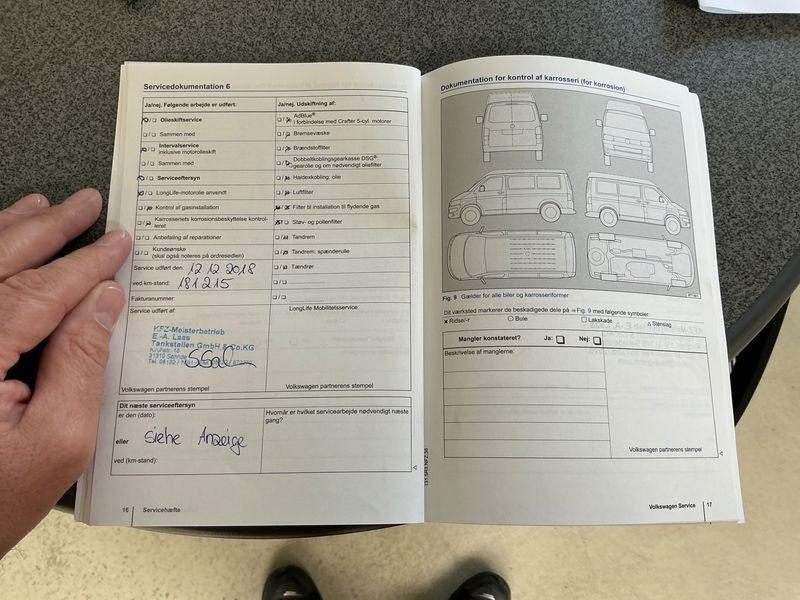 Servicedokumentation 6
Ja/nej. Følgende arbejde er udført:
Olieskiftservice
Sammen med
Intervalservice
inklusive motorolieskift
Sammen med
Serviceeftersyn
LongLife-motorolie anvendt
Kontrol af gasinstallation
Karrosseriets korrosionsbeskyttelse kontrol-
leret
Anbefaling af reparationer
Kundeønske
(skal også noteres på ordresedlen)
Service udført den: 12 12 2018
ved km-stand: 181215
Fakturanummer:
Service udført af:
KFZ-Meisterbetrieb
E.-A. Laas
Tankstellen GmbH & Co.KG
31319 Sehnde
Volkswagen partnerens stempel
Ja/nej. Udskiftning af:
AdBlue®
i forbindelse med Crafter 5-cyl. motorer
Bremsevæske
Brændstoffilter
Dobbeltkoblingsgearkasse DSG®:
gearolie og om nødvendigt oliefilter
Haldexkobling: olie
Luftfilter
Filter til installation til flydende gas
Støv- og pollenfilter
Tandrem
Tandrem: spænderulle
Tændrør
LongLife Mobilitetsservice:
Volkswagen partnerens stempel
Dit næste serviceeftersyn
er den (dato):
eller siehe Anzeige
ved (km-stand):
Hvornår er hvilket servicearbejde nødvendigt næste
gang?
16 Servicehæfte
Dokumentation for kontrol af karrosseri (for korrosion)
Fig. 9 Gælder for alle biler og karrosseriformer
Dit værksted markerer de beskadigede dele på ⇒Fig. 9 med følgende symboler:
x Ridse/-r ○ Bule □ Lakskade △ Stenslag
Mangler konstateret? Ja: Nej:
Beskrivelse af manglerne:
Volkswagen partnerens stempel
Volkswagen Service 17